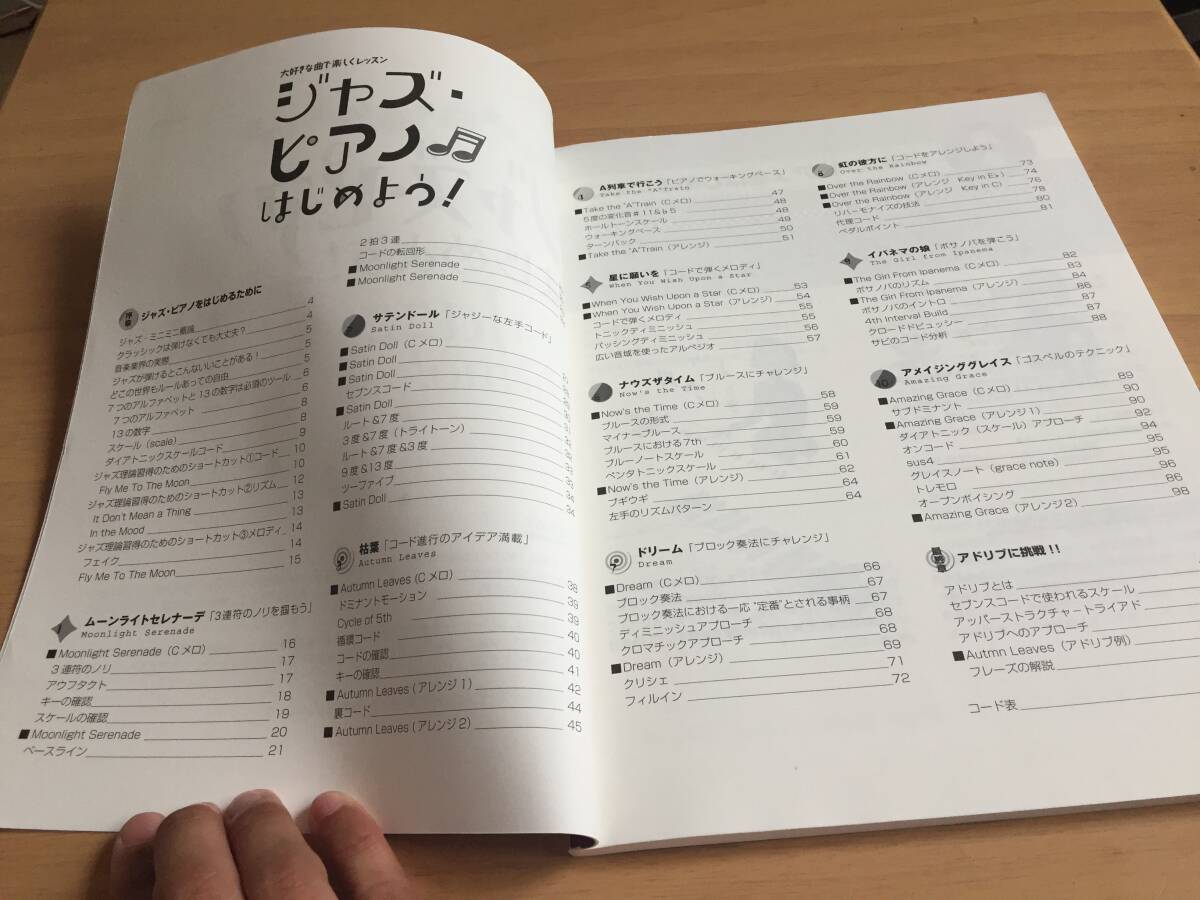 大好きな曲で楽しくレッスン
ジャズ・
ピアノ
はじめよう!
序章 ジャズ・ピアノをはじめるために 4
ジャズ・ミニミニ概論 4
クラッシックは弾けなくても大丈夫? 5
音楽業界の実際 5
ジャズが弾けるとこんないいことがある! 5
どこの世界もルールあっての自由 6
7つのアルファベットと13の数字は必須のツール 6
7つのアルファベット 8
13の数字 8
スケール (scale) 9
ダイアトニックスケールコード 10
ジャズ理論習得のためのショートカット①コード 10
Fly Me To The Moon 12
ジャズ理論習得のためのショートカット②リズム 13
It Don't Mean a Thing 13
In the Mood 14
ジャズ理論習得のためのショートカット③メロディ 14
フェイク 15
Fly Me To The Moon
ムーンライトセレナーデ「3連符のノリを掴もう」
Moonlight Serenade
■Moonlight Serenade (Cメロ) 16
3連符のノリ 17
アウフタクト 17
キーの確認 18
スケールの確認 19
■Moonlight Serenade 20
ベースライン 21
2拍3連
コードの転回形
■Moonlight Serenade
■Moonlight Serenade
2 サテンドール「ジャジーな左手コード」
Satin Doll
■Satin Doll (Cメロ)
■Satin Doll
■Satin Doll
セブンスコード
■Satin Doll
ルート&7度
3度&7度 (トライトーン)
ルート&7度&3度
9度&13度
ツーファイブ
■Satin Doll 34
3 枯葉「コード進行のアイデア満載」
Autumn Leaves
■Autumn Leaves (Cメロ) 38
ドミナントモーション 39
Cycle of 5th 39
循環コード 40
コードの確認 40
キーの確認 41
■Autumn Leaves (アレンジ1) 42
裏コード 44
■Autumn Leaves (アレンジ2) 45
4 A列車で行こう「ピアノでウォーキングベース」
Take the "A"Train
■Take the "A"Train (Cメロ) 47
5度の変化音#11&♭5 48
ホールトーンスケール 48
ウォーキングベース 49
ターンバック 50
■Take the "A"Train (アレンジ) 51
5 星に願いを「コードで弾くメロディ」
When You Wish Upon a Star
■When You Wish Upon a Star (Cメロ) 53
■When You Wish Upon a Star (アレンジ) 54
コードで弾くメロディ 55
トニックディミニッシュ 55
パッシングディミニッシュ 56
広い音域を使ったアルペジオ 57
ナウズザタイム「ブルースにチャレンジ」
Now's the Time
■Now's the Time (Cメロ) 58
ブルースの形式 59
マイナーブルース 59
ブルースにおける7th 59
ブルーノートスケール 60
ペンタトニックスケール 61
■Now's the Time (アレンジ) 62
ブギウギ 64
左手のリズムパターン 64
ドリーム「ブロック奏法にチャレンジ」
Dream
■Dream (Cメロ) 66
ブロック奏法 67
ブロック奏法における一応"定番"とされる事柄 67
ディミニッシュアプローチ 68
クロマチックアプローチ 68
■Dream (アレンジ) 69
クリシェ 71
フィルイン 72
虹の彼方に「コードをアレンジしよう」
Over the Rainbow
■Over the Rainbow (Cメロ) 73
■Over the Rainbow (アレンジ Key in E♭) 74
■Over the Rainbow (アレンジ Key in C) 76
リハーモナイズの技法 78
代理コード 80
ペダルポイント 81
イパネマの娘「ボサノバを弾こう」
The Girl from Ipanema
■The Girl From Ipanema (Cメロ) 82
ボサノバのリズム 83
■The Girl From Ipanema (アレンジ) 84
ボサノバのイントロ 86
4th Interval Build 87
クロードドビュッシー 87
サビのコード分析 88
10 アメイジンググレイス「ゴスペルのテクニック」
Amazing Grace
■Amazing Grace (Cメロ) 89
サブドミナント 90
■Amazing Grace (アレンジ1) 90
ダイアトニック (スケール) アプローチ 92
オンコード 94
sus4 95
グレイスノート (grace note) 95
トレモロ 96
オープンボイシング 86
■Amazing Grace (アレンジ2) 98
最終章 アドリブに挑戦!!
アドリブとは
セブンスコードで使われるスケール
アッパーストラクチャートライアド
アドリブへのアプローチ
■Autmn Leaves (アドリブ例)
フレーズの解説
コード表